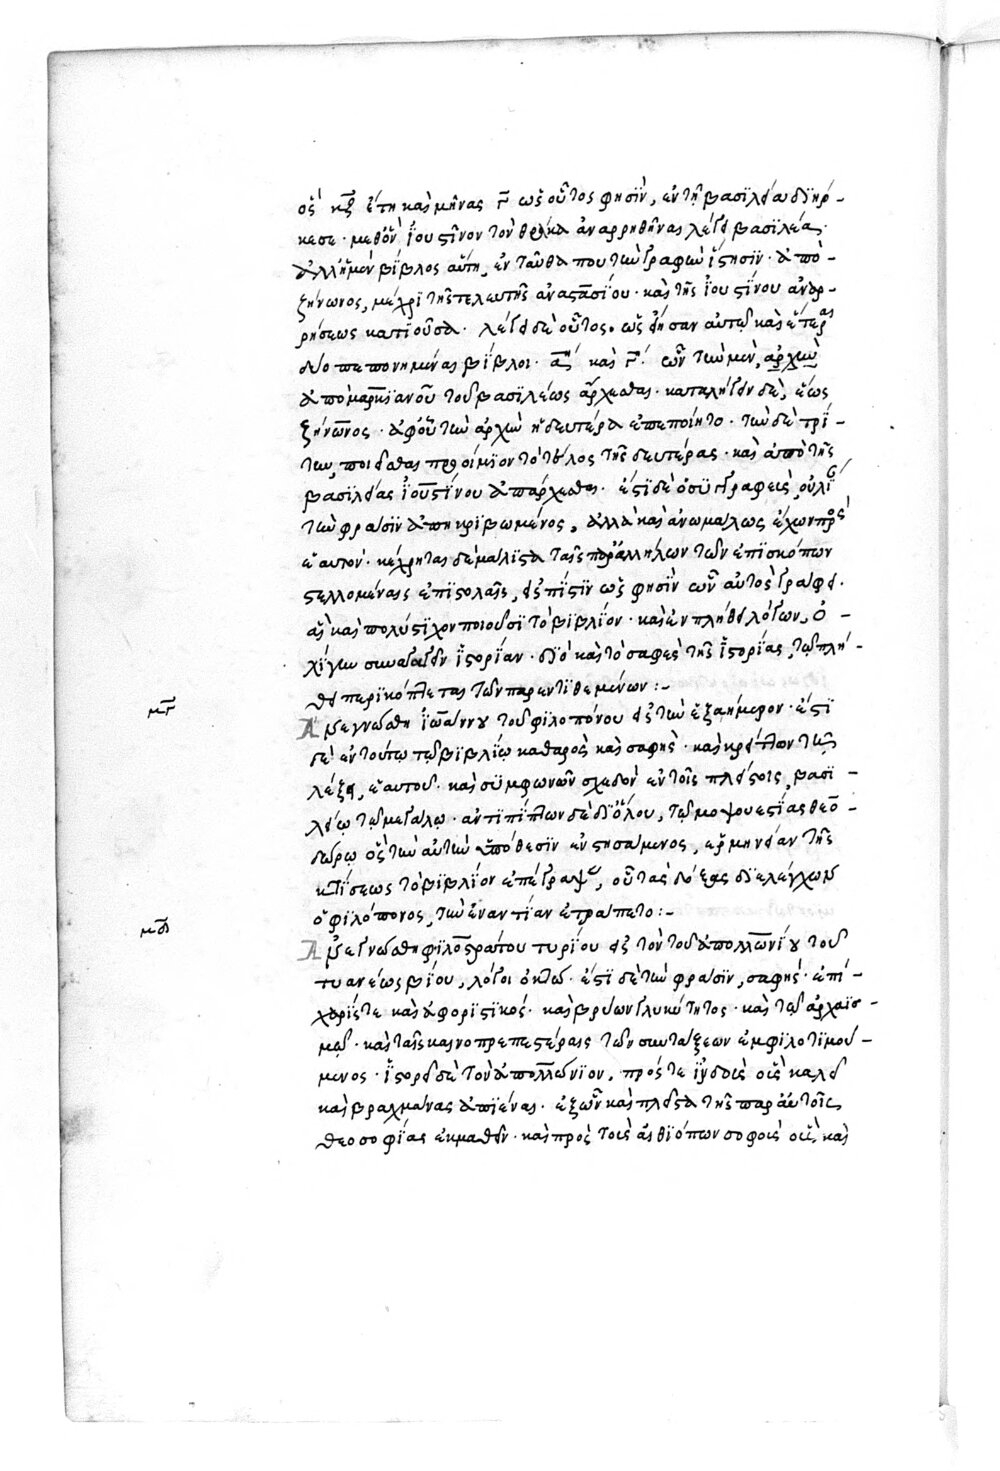 ὃς κζ ἔτη καὶ μῆνας γ ὡς οὗτος φησὶν, ἐν τῇ βασιλείᾳ διήρ-
κεσε· μεθ' ὃν ἰουστῖνον τὸν θρᾷκα ἀναρρηθῆναι λέγει βασιλέα·
ἀλλ' ἡ μὲν βίβλος αὕτη, ἐνταῦθά που τῶν γραφῶν ἵστησιν· ἀπὸ
ζήνωνος, μέχρι τῆς τελευτῆς ἀναστασίου· καὶ τῆς ἰουστίνου ἀναρ-
ρήσεως κατιοῦσα· λέγει δὲ οὗτος· ὡς εἴησαν αὐτῷ καὶ ἕτεραι
δύο πεπονημέναι βίβλοι· α καὶ γ· ὧν τὴν μὲν, ἀρχὴν
ἀπὸ μαρκιανοῦ τοῦ βασιλέως ἄρχεσθαι· καταλήγειν δὲ, ἕως
ζήνωνος· ἀφ' οὗ τὴν ἀρχὴν ἡ δευτέρα ἐπεποίητο· τὴν δὲ τρί-
την, ποιεῖσθαι προοίμιον τὸ τέλος τῆς δευτέρας· καὶ ἀπὸ τῆς
βασιλείας ἰουστίνου ἀπάρχεσθαι· ἔστι δὲ ὁ συγγραφεὺς, οὐ λίαν
τὴν φράσιν ἀπηκριβωμένος, ἀλλὰ καὶ ἀνωμάλως ἔχων πρὸς
ἑαυτόν· κέχρηται δὲ μάλιστα ταῖς παρ' ἀλλήλων τῶν ἐπισκόπων
στελλομέναις ἐπιστολαῖς, εἰς πίστιν ὡς φησὶν ὧν αὐτὸς γράφει·
αἳ καὶ πολύστιχον ποιοῦσι τὸ βιβλίον· καὶ ἐν πλήθει λόγων, ὀ-
λίγην συνάγειν ἱστορίαν· διὸ καὶ τὸ σαφὲς τῆς ἱστορίας, τῷ πλή-
θει περικόπτεται τῶν παρεντιθεμένων:-
μγ
Ἀνεγνώσθη ἰωάννου τοῦ φιλοπόνου εἰς τὴν ἑξαήμερον· ἔστι
δὲ ἐν τούτῳ τῷ βιβλίῳ καθαρὸς καὶ σαφὴς· καὶ κρείττων τὴν
λέξιν, ἑαυτοῦ· καὶ συμφωνῶν σχεδὸν ἐν τοῖς πλείστοις, βασι-
λείῳ τῷ μεγάλῳ· ἀντιπίπτων δὲ δι' ὅλου, τῷ μοψουεστίας θεο-
δώρῳ ὃς τὴν αὐτὴν ὑπόθεσιν ἐνστησάμενος, ἑρμηνείαν τῆς
κτίσεως τὸ βιβλίον ἐπέγραψεν, οὗ τὰς δόξας διελέγχων
ὁ φιλόπονος, τὴν ἐναντίαν ἐτράπετο:-
μδ
Ἀνεγνώσθη φιλοστράτου τυρίου εἰς τὸν τοῦ ἀπολλωνίου τοῦ
τυανέως βίου, λόγοι ὀκτώ· ἔστι δὲ τὴν φράσιν, σαφὴς· ἐπί-
χαρίς τε καὶ ἀφοριστικός· καὶ βρύων γλυκύτητος· καὶ τῷ ἀρχαϊσ-
μῷ· καὶ ταῖς καινοπρεπεστέραις τῶν συντάξεων ἐμφιλοτιμού-
μενος· ἱστορεῖ δὲ τὸν ἀπολλώνιον, πρός τε ἰνδοὺς οὓς καλεῖ
καὶ βραχμᾶνας ἀπιέναι· ἐξ ὧν καὶ πλεῖστα τῆς παρ' αὐτοῖς
θεοσοφίας ἐκμαθεῖν· καὶ πρὸς τοὺς αἰθιόπων σοφοὺς οὓς καὶ